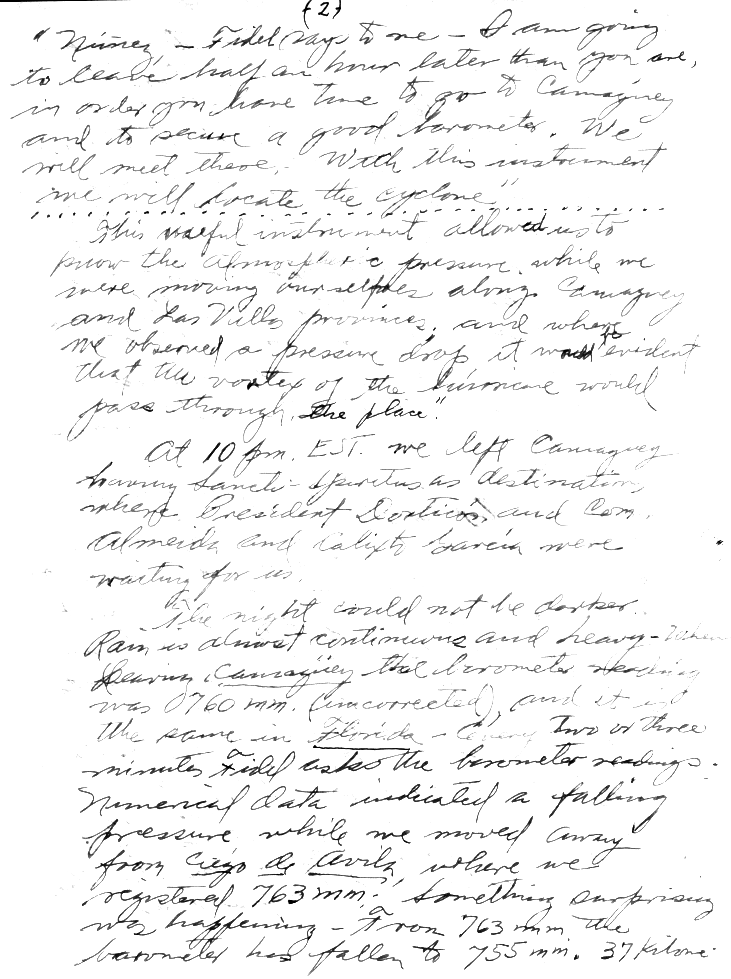 (2)
"Núñez - Fidel says to me - I am going
to leave half an hour later than you are,
in order you have time to go to Camagüey
and to secure a good barometer. We
will meet there. With this instrument
we will locate the cyclone"
This useful instrument allowed us to
know the atmospheric pressure while we
were moving ourselves along Camaguey
and Las Villas provinces, and where
we observed a pressure drop it would be evident
that the vortex of the hurricane would
pass through the place".
At 10 pm. EST. we left Camaguey
having Sancti-Spiritus as destination,
where President Dorticós and Com.
Almeida and Calixto García were
waiting for us.
The night could not be darker.
Rain is almost continuous and heavy - When
leaving Camagüey the barometer reading
was 0760 mm. (uncorrected), and it is
the same in Florida - Every two or three
minutes Fidel asks the barometer readings.
Numerical data indicated a falling
pressure while we moved away
from Ciego de Avila, where we
registered 763 mm. Something surprising
was happening - From 763 mm the
barometer has fallen to 755 mm. 37 Kilome-